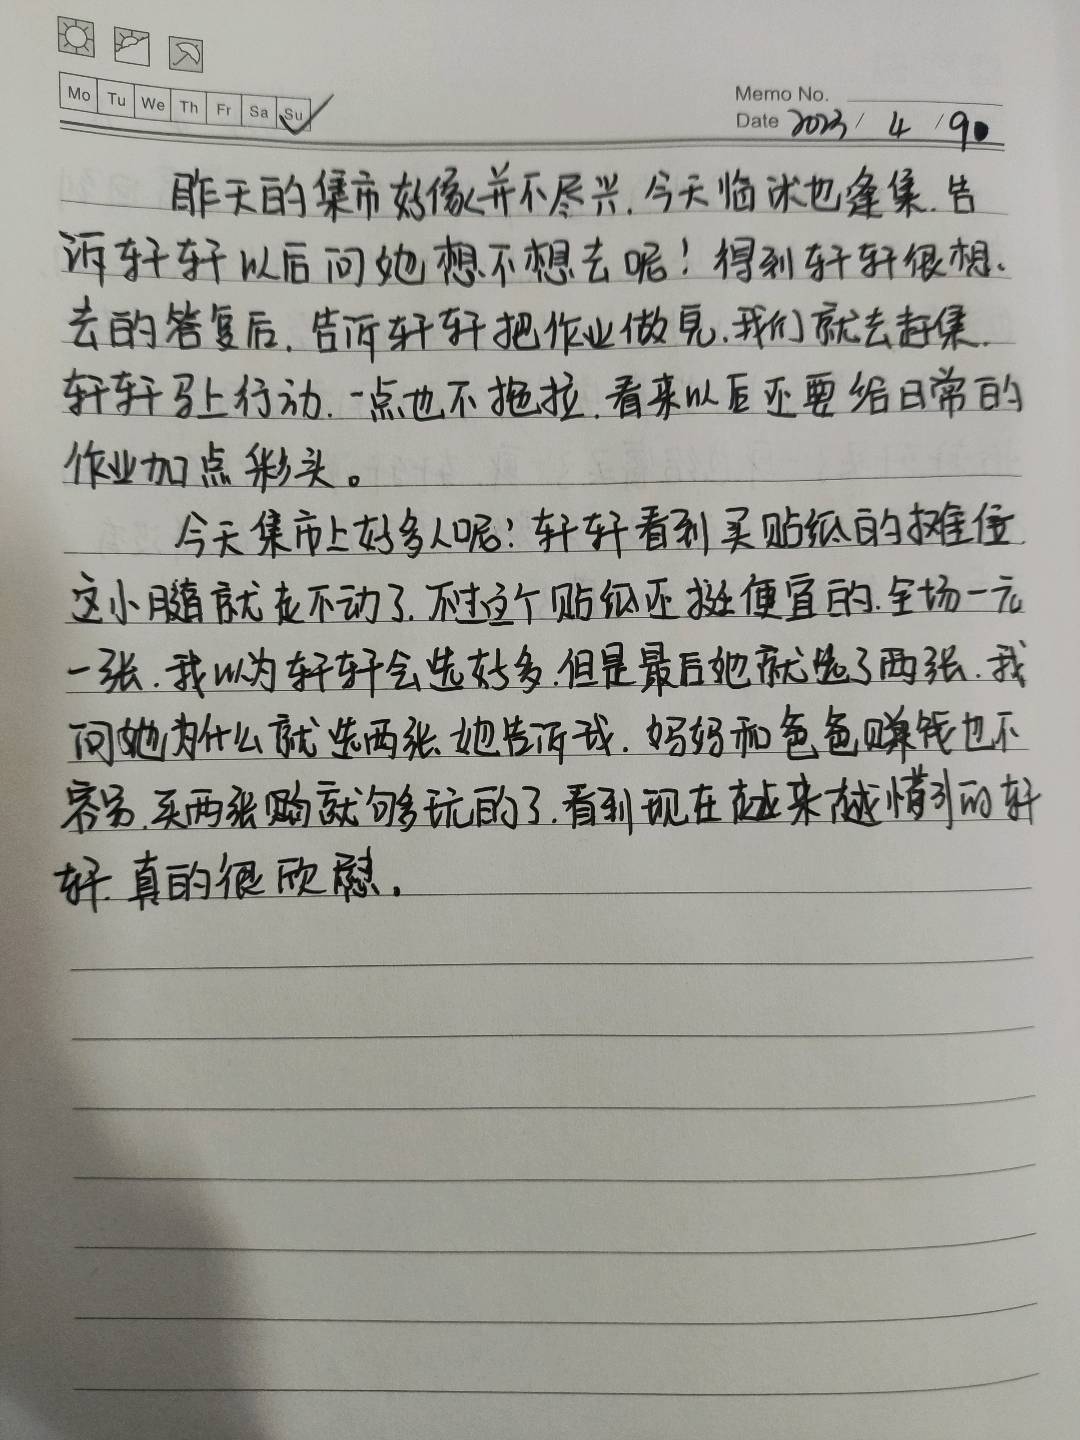 Mo Tu We Th Fr Sa Su
Memo No.
Date 2023 / 4 / 9
昨天的集市好像并不尽兴,今天临沭也逢集,告
诉轩轩以后问她想不想去呢!得到轩轩很想
去的答复后,告诉轩轩把作业做完,我们就去赶集,
轩轩马上行动,一点也不拖拉,看来以后还要给日常的
作业加点彩头。
今天集市上好多人呢!轩轩看到买贴纸的摊位
这小腿就走不动了,不过这个贴纸还挺便宜的,全场一元
一张,我以为轩轩会选好多,但是最后她就选了两张,我
问她为什么就选两张,她告诉我,妈妈和爸爸赚钱也不
容易,买两张购就够多玩的了,看到现在越来越懂事的轩
轩,真的很欣慰。